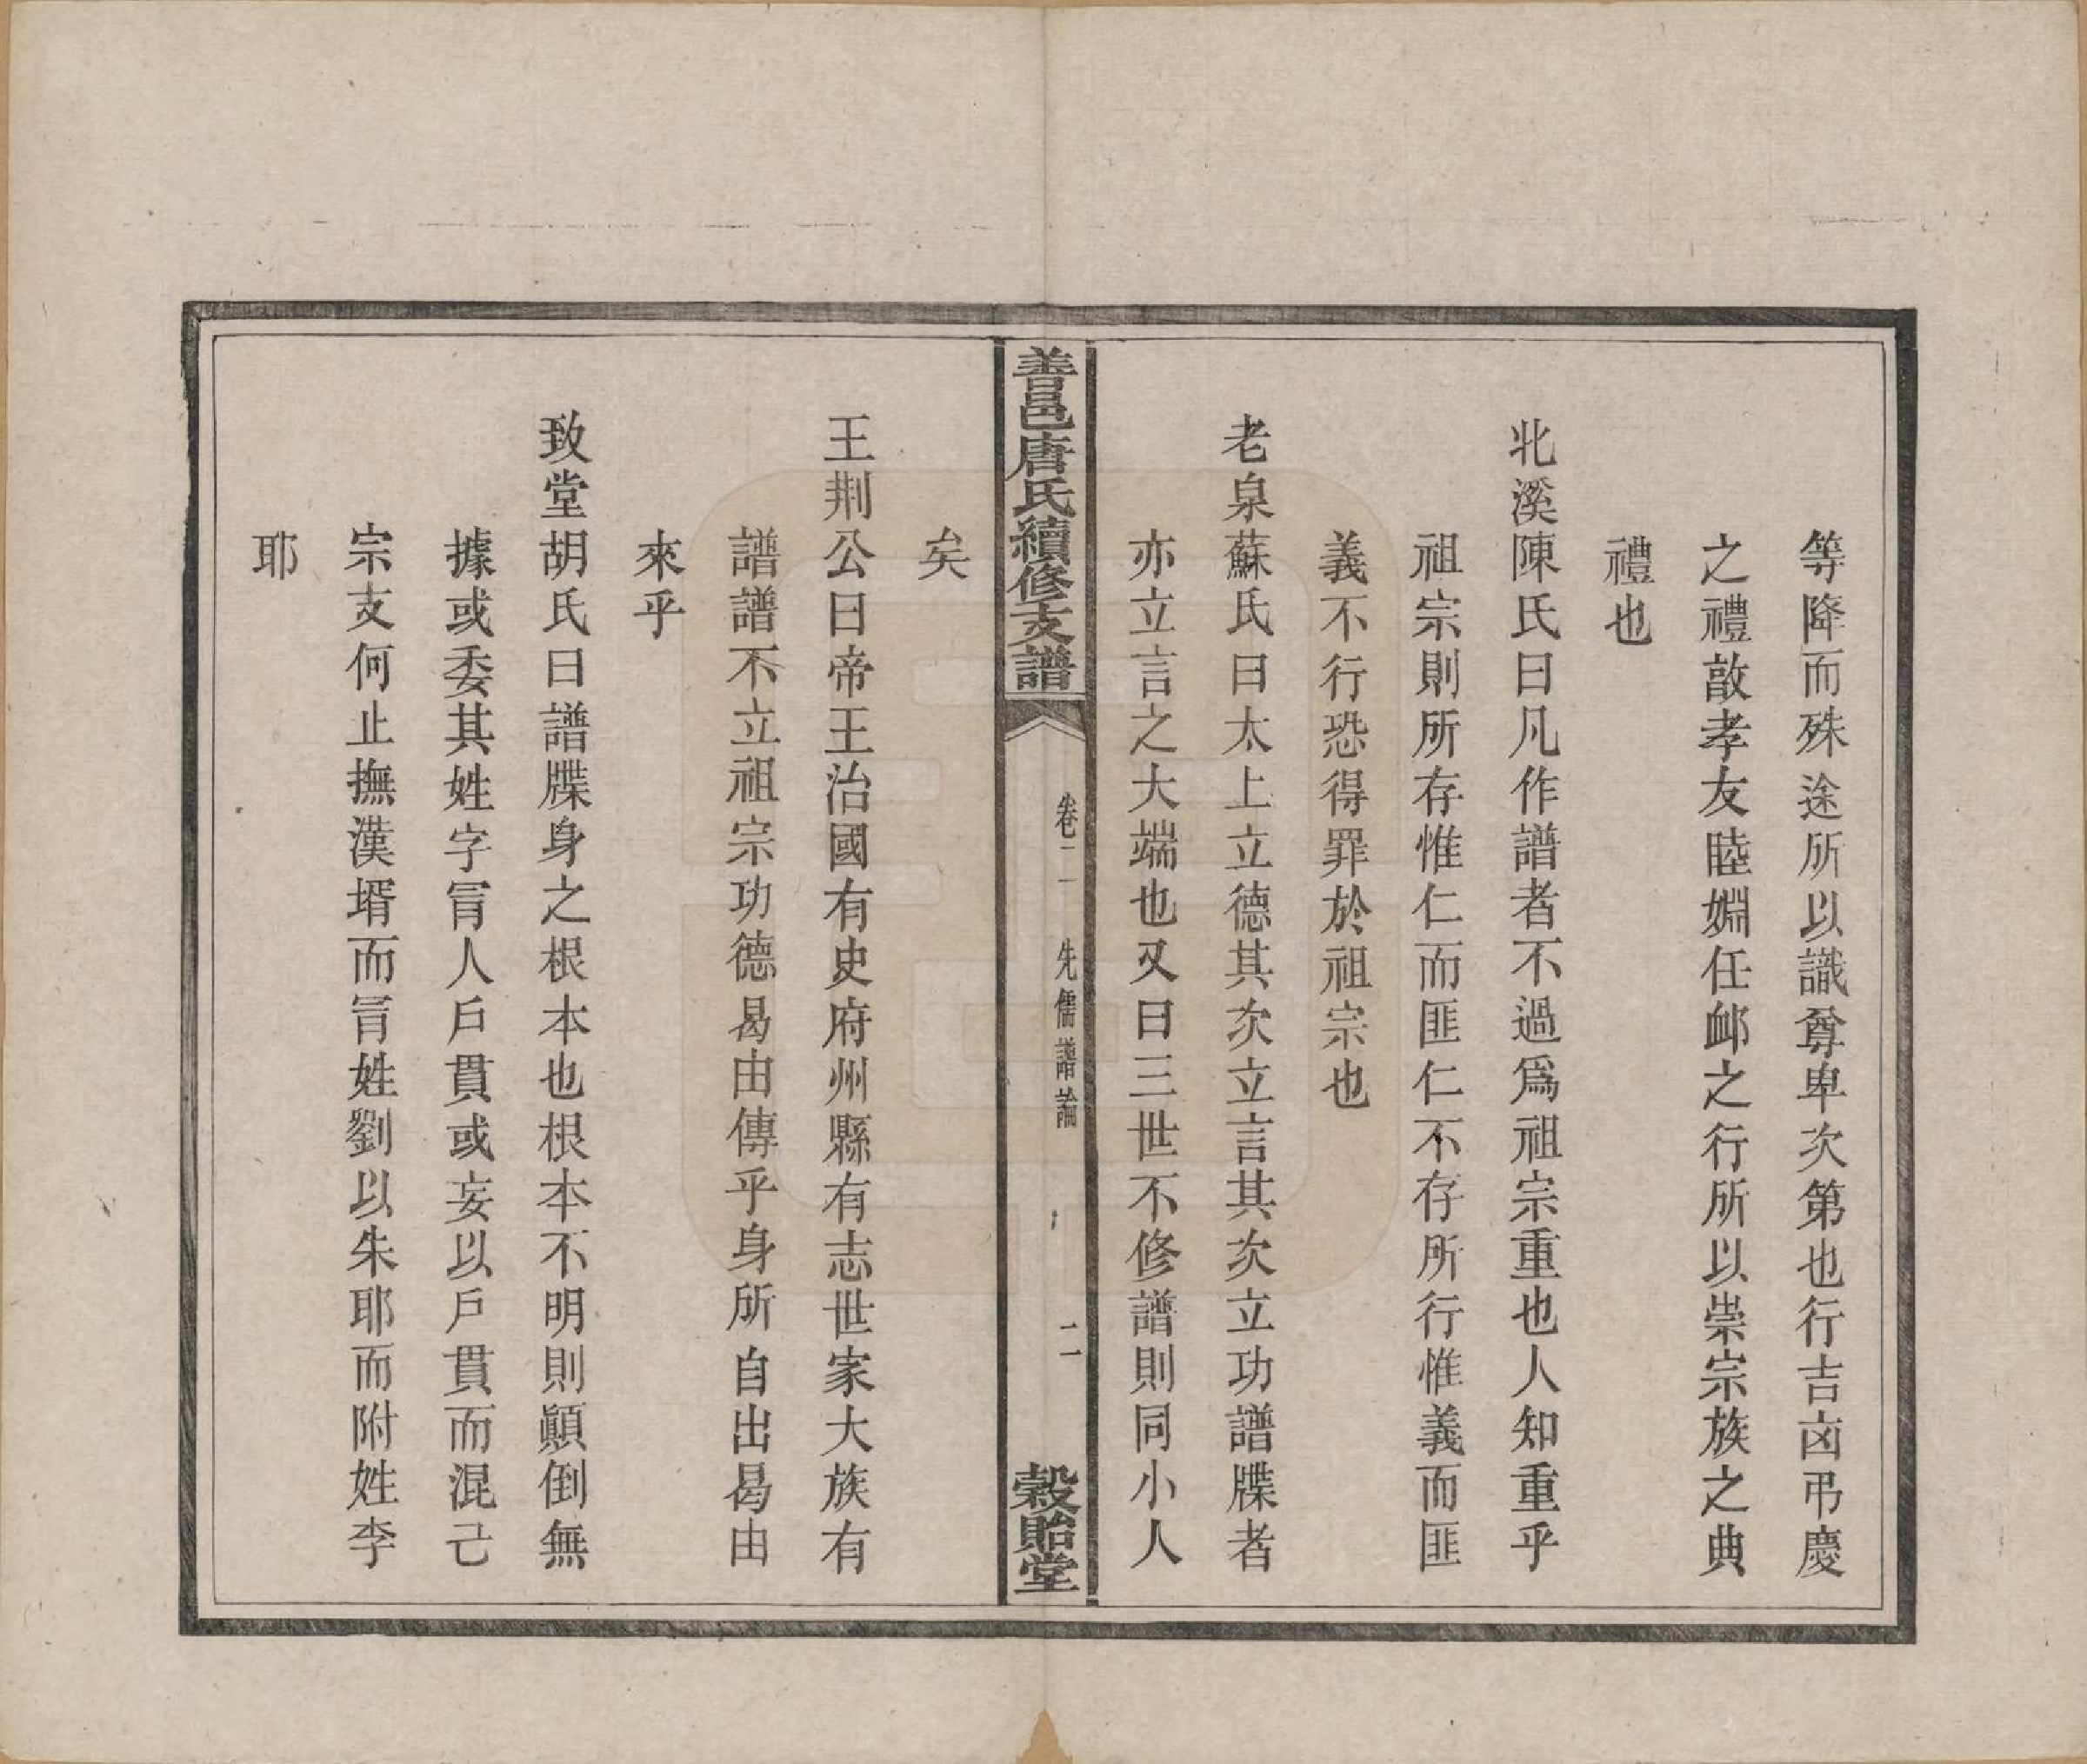 等降而殊途所以識尊卑次第也行吉凶弔慶
之禮敨孝友睦婣任卹之行所以崇宗族之典
禮也
北溪陳氏曰凡作譜者不過爲祖宗重也人知重乎
祖宗則所存惟仁而匪仁不存所行惟義而匪
義不行恐得罪於祖宗也
老泉蘇氏曰太上立德其次立言其次立功譜牒者
亦立言之大端也又曰三世不修譜則同小人
善邑唐氏續修支譜
卷二一
先儒譜論
二
穀貽堂
矣
王荆公曰帝王治國有史府州縣有志世家大族有
譜譜不立祖宗功德曷由傳乎身所自出曷由
來乎
致堂胡氏曰譜牒身之根本也根本不明則顚倒無
據或委其姓字冐人戶貫或妄以戶貫而混己
宗支何止撫漢壻而冐姓劉以朱耶而附姓李
耶